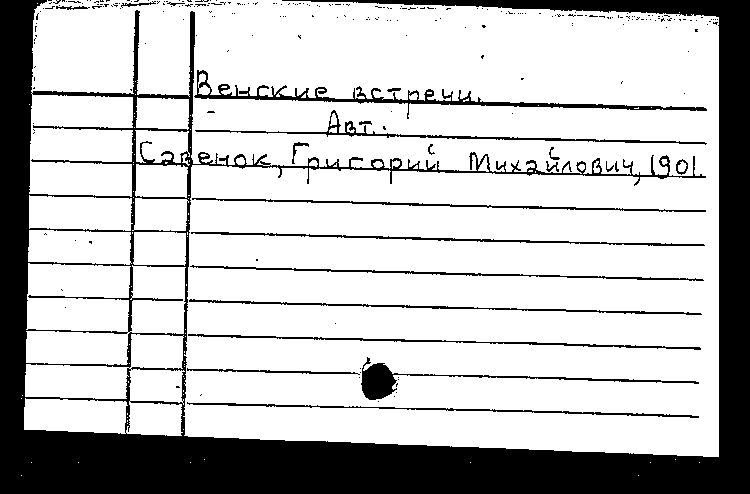 Венские встречи.
Авт.:
Савенок, Григорий Михайлович, 1901.